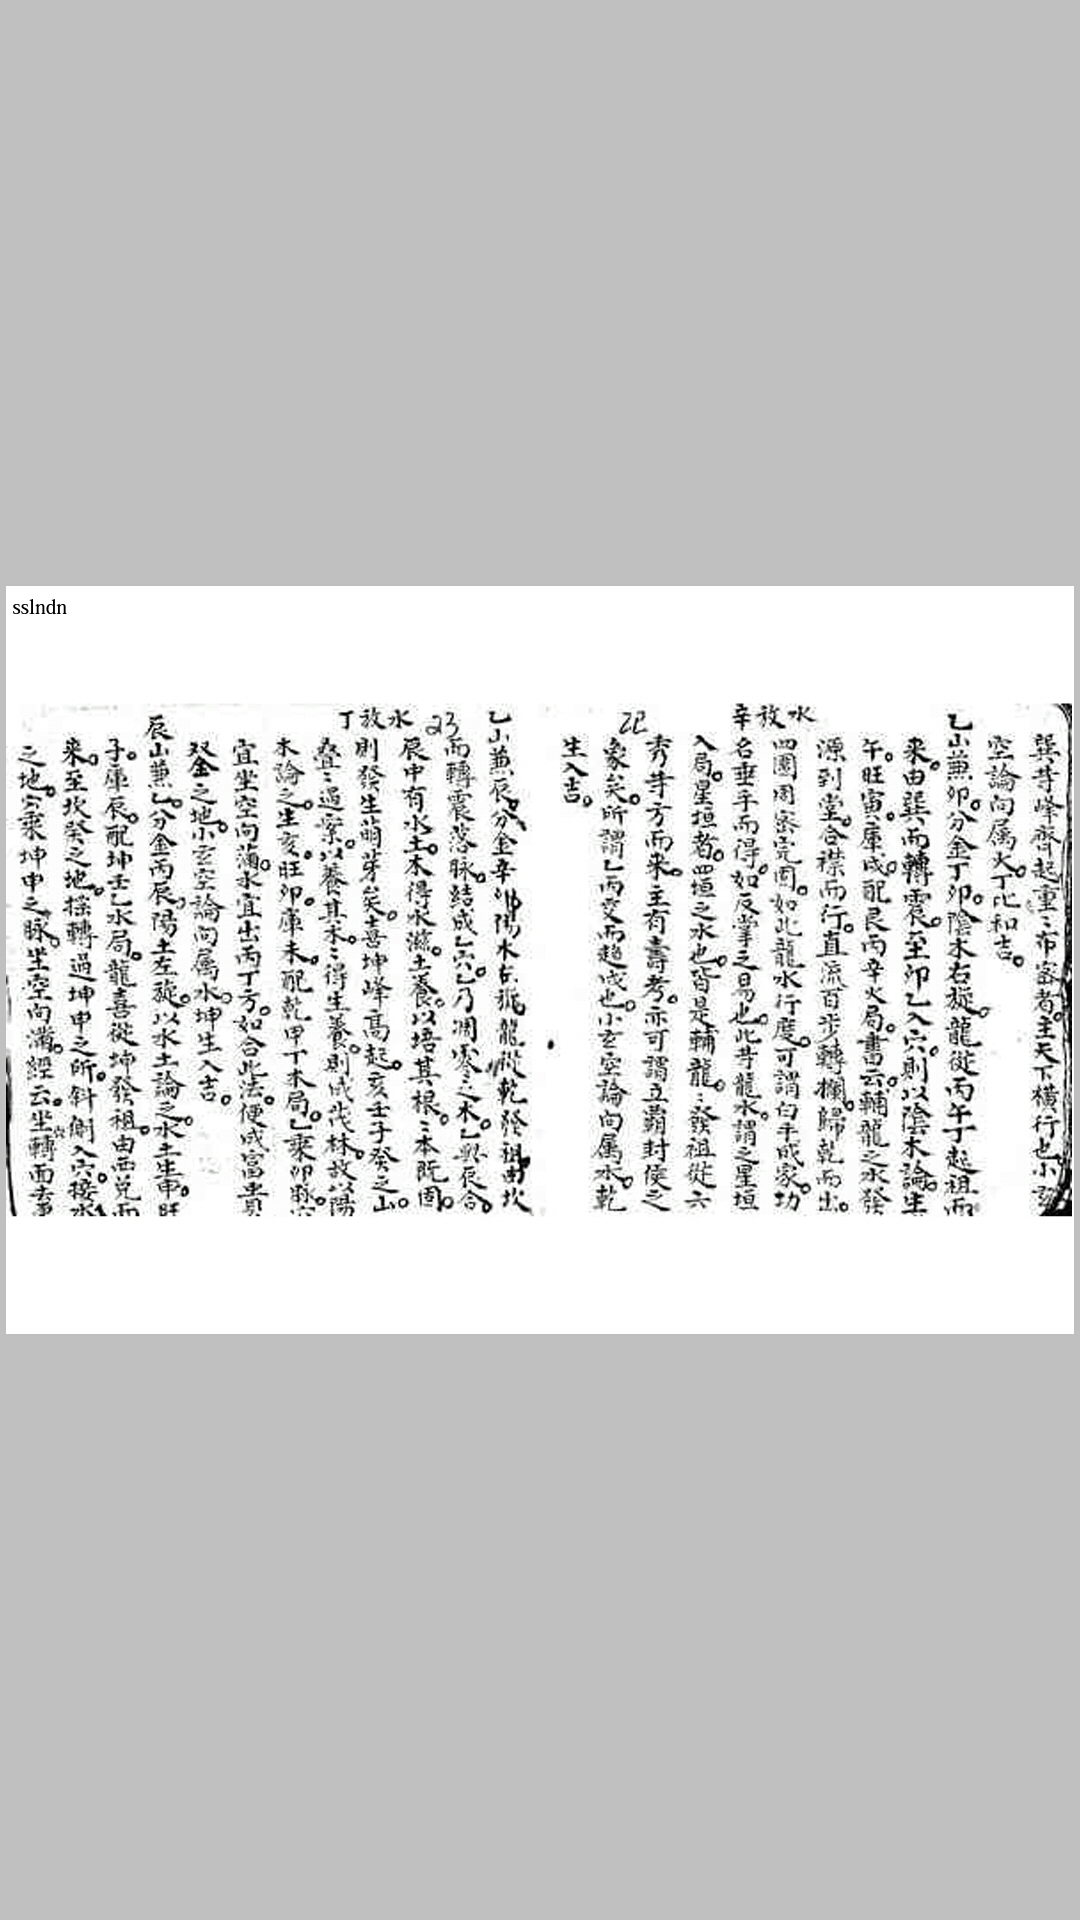 sslndn
巽等峰齊起重〻布密者主天下橫行也小玄
空論向属火丁比和吉
乙山兼卯分金丁卯陰木右旋龍從丙午丁起祖而
来由巽而轉震至卯乙入穴則以陰木論生
午旺寅庫戌配艮丙辛火局書云輔龍之水發
源到堂合襟而行直流百步轉欄歸乾而出
水放辛
四圍周密完固如此龍水行度可謂白手成家功
名垂手而得如反掌之易也此等龍水謂之星垣
入局星垣者四垣之水也皆是輔龍〻發祖從六
秀等方而来主有壽考亦可謂立霸封侯之
22
象矣所謂乙丙交而趋戌也小玄空論向属水乾
生入吉
乙山兼辰分金辛卯陽木左旋龍從乾發祖由坎
23
而轉震落脉結成乙穴乃凋零之木乙與辰合
辰中有水土木得水滋土養以培其根〻本既固
水放丁
則發生萌芽矣喜坤峰高起亥壬子癸之山
叠〻過案以養其木〻得生養則成茂林故以陽
木論之生亥旺卯庫未配乾甲丁木局乙乘卯脉穴
宜坐空向滿水宜出丙丁方如合此法便成富貴
双金之地小玄空論向属水坤生入吉
辰山兼乙分金丙辰陽土左旋以水土論之水土生申旺
子庫辰配坤壬乙水局龍喜從坤發祖由西兌而
来至坎癸之地轉過坤申之所斜側入穴接水
之地穴乘坤申之脉坐空向滿經云坐轉面